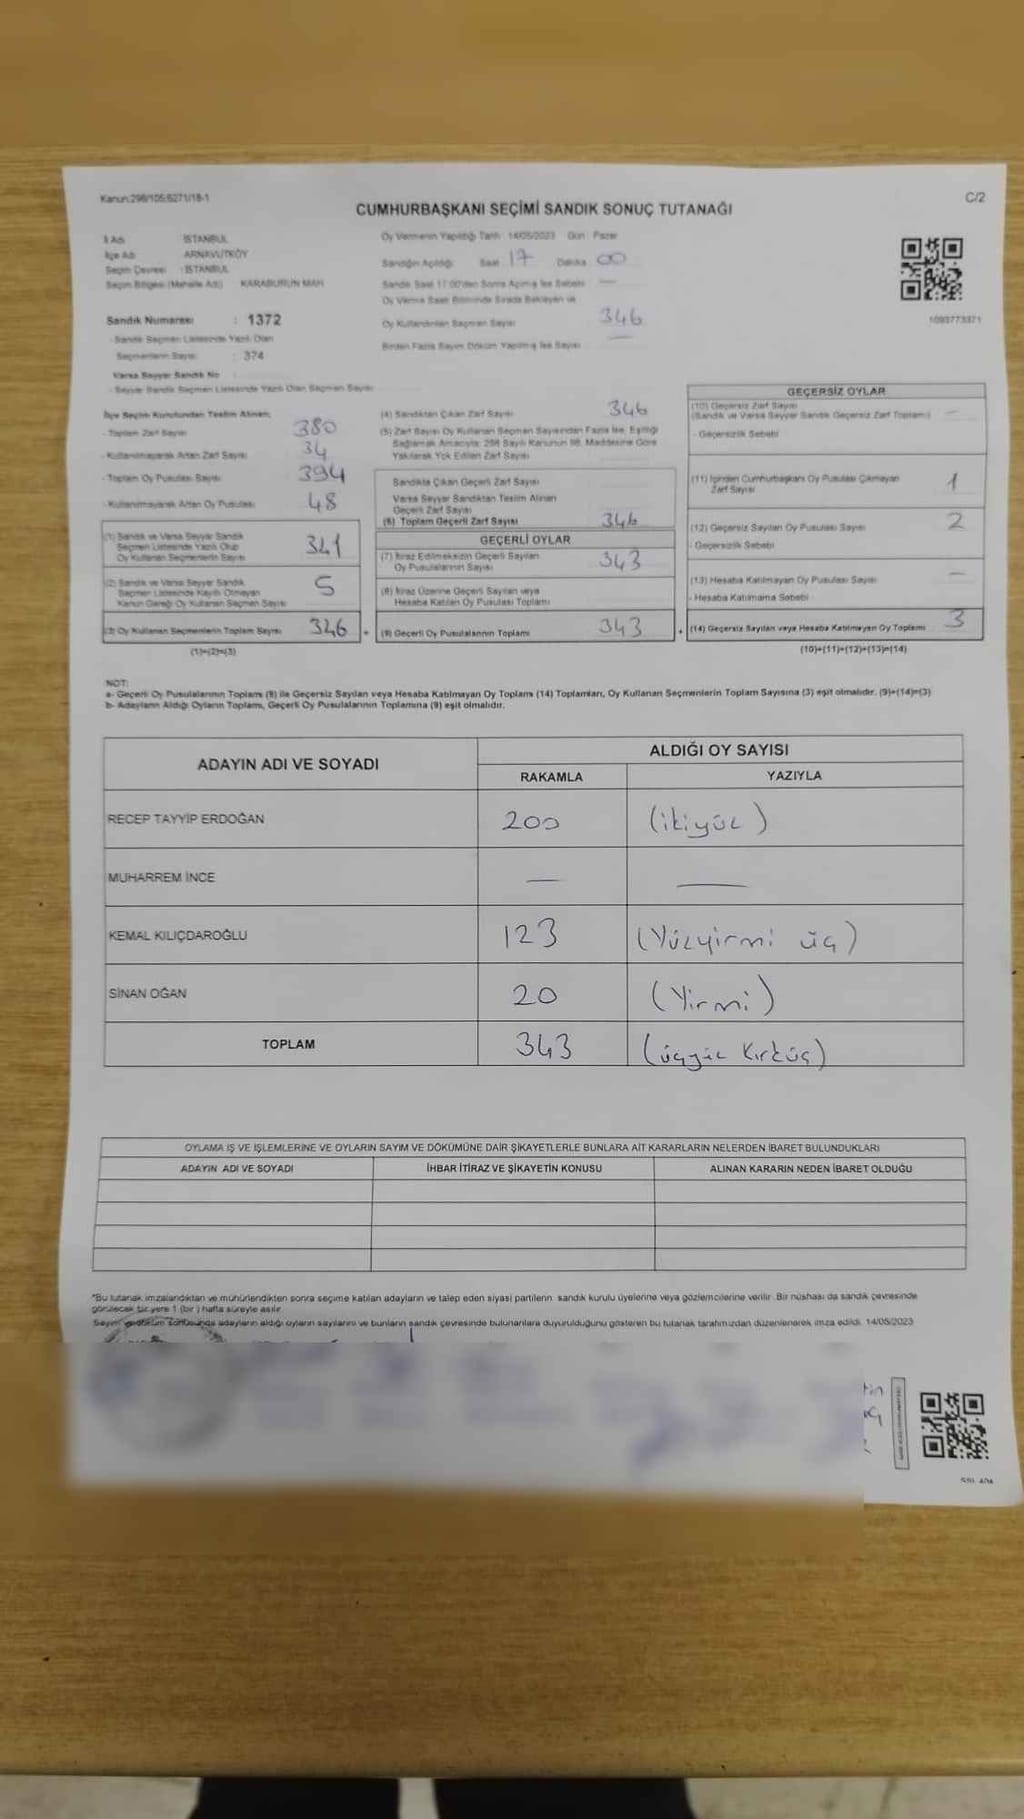 Kanun:298/105;6271/18-1
C/2
CUMHURBAŞKANI SEÇİMİ SANDIK SONUÇ TUTANAĞI
İl Adı : İSTANBUL
İlçe Adı : ARNAVUTKÖY
Seçim Çevresi : İSTANBUL
Seçim Bölgesi (Mahalle Adı) : KARABURUN MAH
Sandık Numarası : 1372
- Sandık Seçmen Listesinde Yazılı Olan
Seçmenlerin Sayısı : 374
Varsa Seyyar Sandık No
- Seyyar Sandık Seçmen Listesinde Yazılı Olan Seçmen Sayısı
Oy Vermenin Yapıldığı Tarih 14/05/2023 Gün : Pazar
Sandığın Açıldığı Saat 17 Dakika 00
Sandık Saat 17:00'den Sonra Açılmış İse Sebebi —
Oy Verme Saati Bitiminde Sırada Bekleyen ve
Oy Kullandırılan Seçmen Sayısı 346
Birden Fazla Sayım Döküm Yapılmış İse Sayısı —
1093773371
İlçe Seçim Kurulundan Teslim Alınan;
- Toplam Zarf Sayısı 380
- Kullanılmayarak Artan Zarf Sayısı 34
- Toplam Oy Pusulası Sayısı 394
- Kullanılmayarak Artan Oy Pusulası 48
(1) Sandık ve Varsa Seyyar Sandık
Seçmen Listesinde Yazılı Olup
Oy Kullanan Seçmenlerin Sayısı 341
(2) Sandık ve Varsa Seyyar Sandık
Seçmen Listesinde Kayıtlı Olmayan
Kanun Gereği Oy Kullanan Seçmen Sayısı 5
(3) Oy Kullanan Seçmenlerin Toplam Sayısı 346
(1)+(2)=(3)
(4) Sandıktan Çıkan Zarf Sayısı 346
(5) Zarf Sayısı Oy Kullanan Seçmen Sayısından Fazla İse, Eşitliği
Sağlamak Amacıyla; 298 Sayılı Kanunun 98. Maddesine Göre
Yakılarak Yok Edilen Zarf Sayısı
Sandıkta Çıkan Geçerli Zarf Sayısı
Varsa Seyyar Sandıktan Teslim Alınan
Geçerli Zarf Sayısı
(6) Toplam Geçerli Zarf Sayısı 346
GEÇERLİ OYLAR
(7) İtiraz Edilmeksizin Geçerli Sayılan
Oy Pusulalarının Sayısı 343
(8) İtiraz Üzerine Geçerli Sayılan veya
Hesaba Katılan Oy Pusulası Toplamı
= (9) Geçerli Oy Pusulalarının Toplamı 343
GEÇERSİZ OYLAR
(10) Geçersiz Zarf Sayısı
(Sandık ve Varsa Seyyar Sandık Geçersiz Zarf Toplamı) —
- Geçersizlik Sebebi
(11) İçinden Cumhurbaşkanı Oy Pusulası Çıkmayan
Zarf Sayısı 1
(12) Geçersiz Sayılan Oy Pusulası Sayısı 2
- Geçersizlik Sebebi
(13) Hesaba Katılmayan Oy Pusulası Sayısı —
- Hesaba Katılmama Sebebi
+ (14) Geçersiz Sayılan veya Hesaba Katılmayan Oy Toplamı 3
(10)+(11)+(12)+(13)=(14)
NOT:
a- Geçerli Oy Pusulalarının Toplamı (9) ile Geçersiz Sayılan veya Hesaba Katılmayan Oy Toplamı (14) Toplamları, Oy Kullanan Seçmenlerin Toplam Sayısına (3) eşit olmalıdır. (9)+(14)=(3)
b- Adayların Aldığı Oyların Toplamı, Geçerli Oy Pusulalarının Toplamına (9) eşit olmalıdır.
ADAYIN ADI VE SOYADI
ALDIĞI OY SAYISI
RAKAMLA YAZIYLA
RECEP TAYYİP ERDOĞAN 200 (ikiyüz)
MUHARREM İNCE — —
KEMAL KILIÇDAROĞLU 123 (Yüzyirmi üç)
SİNAN OĞAN 20 (Yirmi)
TOPLAM 343 (üçyüz Kırküç)
OYLAMA İŞ VE İŞLEMLERİNE VE OYLARIN SAYIM VE DÖKÜMÜNE DAİR ŞİKAYETLERLE BUNLARA AİT KARARLARIN NELERDEN İBARET BULUNDUKLARI
ADAYIN ADI VE SOYADI İHBAR İTİRAZ VE ŞİKAYETİN KONUSU ALINAN KARARIN NEDEN İBARET OLDUĞU
*Bu tutanak imzalandıktan ve mühürlendikten sonra seçime katılan adayların ve talep eden siyasi partilerin sandık kurulu üyelerine veya gözlemcilerine verilir. Bir nüshası da sandık çevresinde
görülecek bir yere 1 (bir) hafta süreyle asılır.
Sayım ve döküm sonucunda adayların aldığı oyların sayılarını ve bunların sandık çevresinde bulunanlara duyurulduğunu gösteren bu tutanak tarafımızdan düzenlenerek imza edildi. 14/05/2023